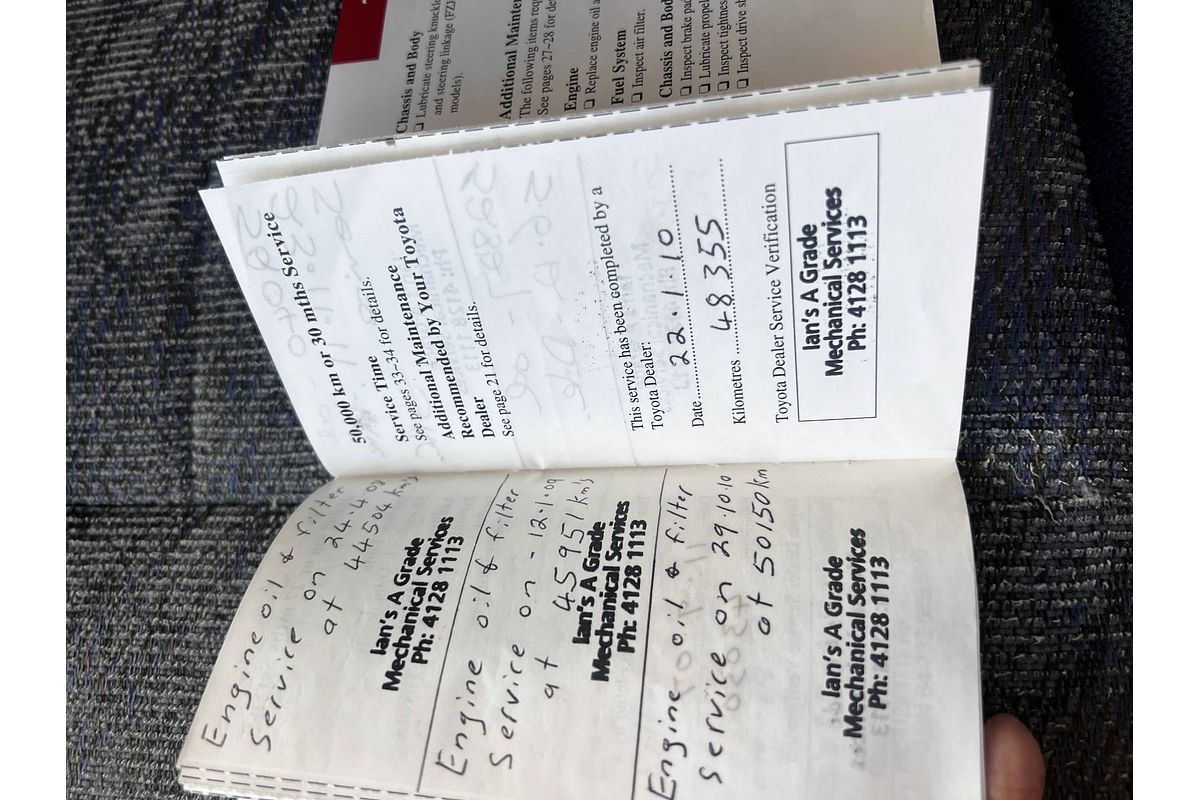 Engine oil & filter
Service on 24.4.08
at 44504 km's
Ian's A Grade
Mechanical Services
Ph: 4128 1113
Engine oil & filter
Service on - 12.1.09
at 45951 km's
Ian's A Grade
Mechanical Services
Ph: 4128 1113
Engine oil & filter
Service on 29.10.10
at 50150 km
Ian's A Grade
Mechanical Services
Ph: 4128 1113
50,000 km or 30 mths Service
Service Time
See pages 33–34 for details.
Additional Maintenance
Recommended by Your Toyota
Dealer
See page 21 for details.
This service has been completed by a
Toyota Dealer:
Date 22.1.10
Kilometres 48355
Toyota Dealer Service Verification
Ian's A Grade
Mechanical Services
Ph: 4128 1113
Chassis and Body
❑ Lubricate steering knuckle
and steering linkage (FZJ
models).
Additional Mainten
The following items req
See pages 27–28 for de
Engine
❑ Replace engine oil a
Fuel System
❑ Inspect air filter.
Chassis and Bod
❑ Inspect brake pad
❑ Lubricate propel
❑ Inspect tightness
❑ Inspect drive sh